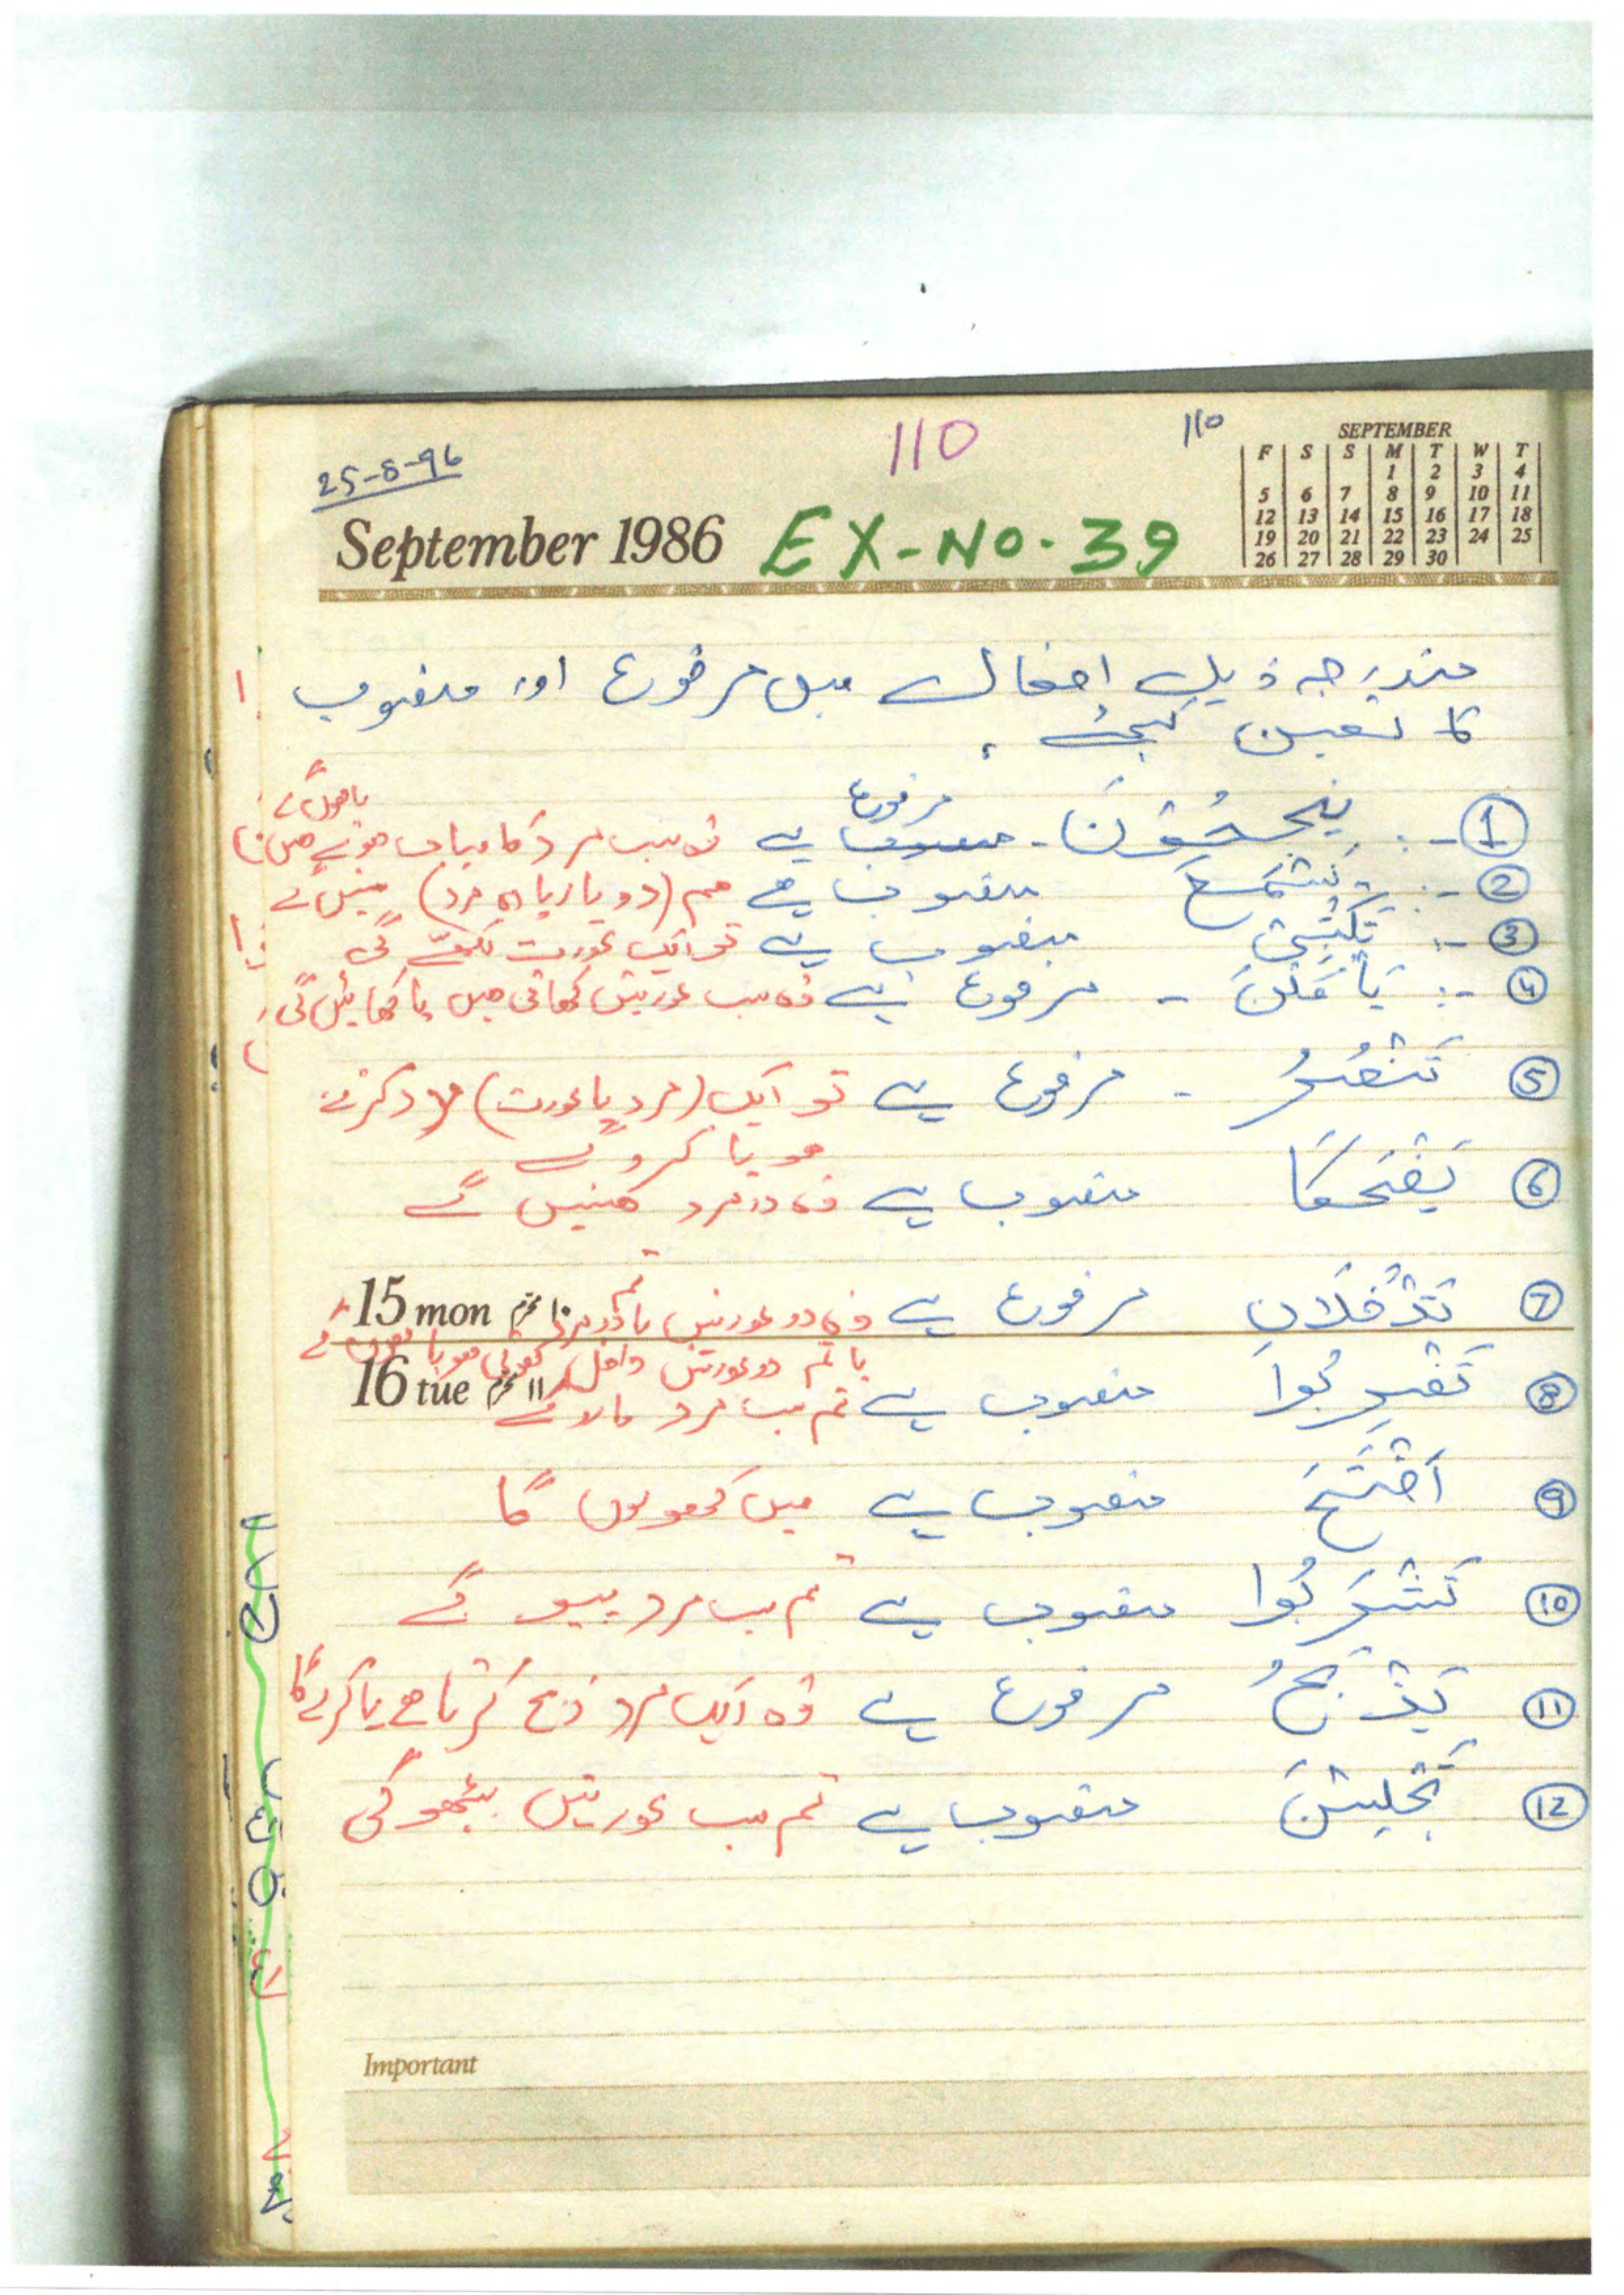 110
110
25-8-96
September 1986 EX-NO. 39
SEPTEMBER
F S S M T W T
1 2 3 4
5 6 7 8 9 10 11
12 13 14 15 16 17 18
19 20 21 22 23 24 25
26 27 28 29 30
مندرجہ ذیل افعال میں مرفوع اور منصوب
کا تعین کیجئے
مرفوع یا ہوں گے
① -: یَنْجَحُوْنَ - منصوب ہے وہ سب مرد کامیاب ہوتے ہیں
② -: نَسْمَعَ منصوب ہے ہم (دو یا زیادہ مرد) سنیں گے
③ -: تَکْتُبِیْ منصوب ہے تو ایک عورت لکھے گی
④ -: یَأْکُلْنَ - مرفوع ہے وہ سب عورتیں کھاتی ہیں یا کھائیں گی
⑤ تَنْصُرُ - مرفوع ہے تو ایک (مرد یا عورت) مدد کرتے
ہو یا کرو گے
⑥ یَضْحَکَا منصوب ہے وہ دو مرد ہنسیں گے
⑦ تَدْخُلَانِ مرفوع ہے وہ دو عورتیں یا تم دو مرد
15 mon ۱۰ محرم
یا تم دو عورتیں داخل ہوتی ہو یا ہوں گے
16 tue ۱۱ محرم
⑧ تَضْرِبُوا منصوب ہے تم سب مرد مارو گے
⑨ اَفْتَحَ منصوب ہے میں کھولوں گا
⑩ تَشْرَبُوا منصوب ہے تم سب مرد پیو گے
⑪ یَذْبَحُ مرفوع ہے وہ ایک مرد ذبح کرتا ہے یا کرے گا
⑫ تَجْلِسْنَ منصوب ہے تم سب عورتیں بیٹھو گی
Important